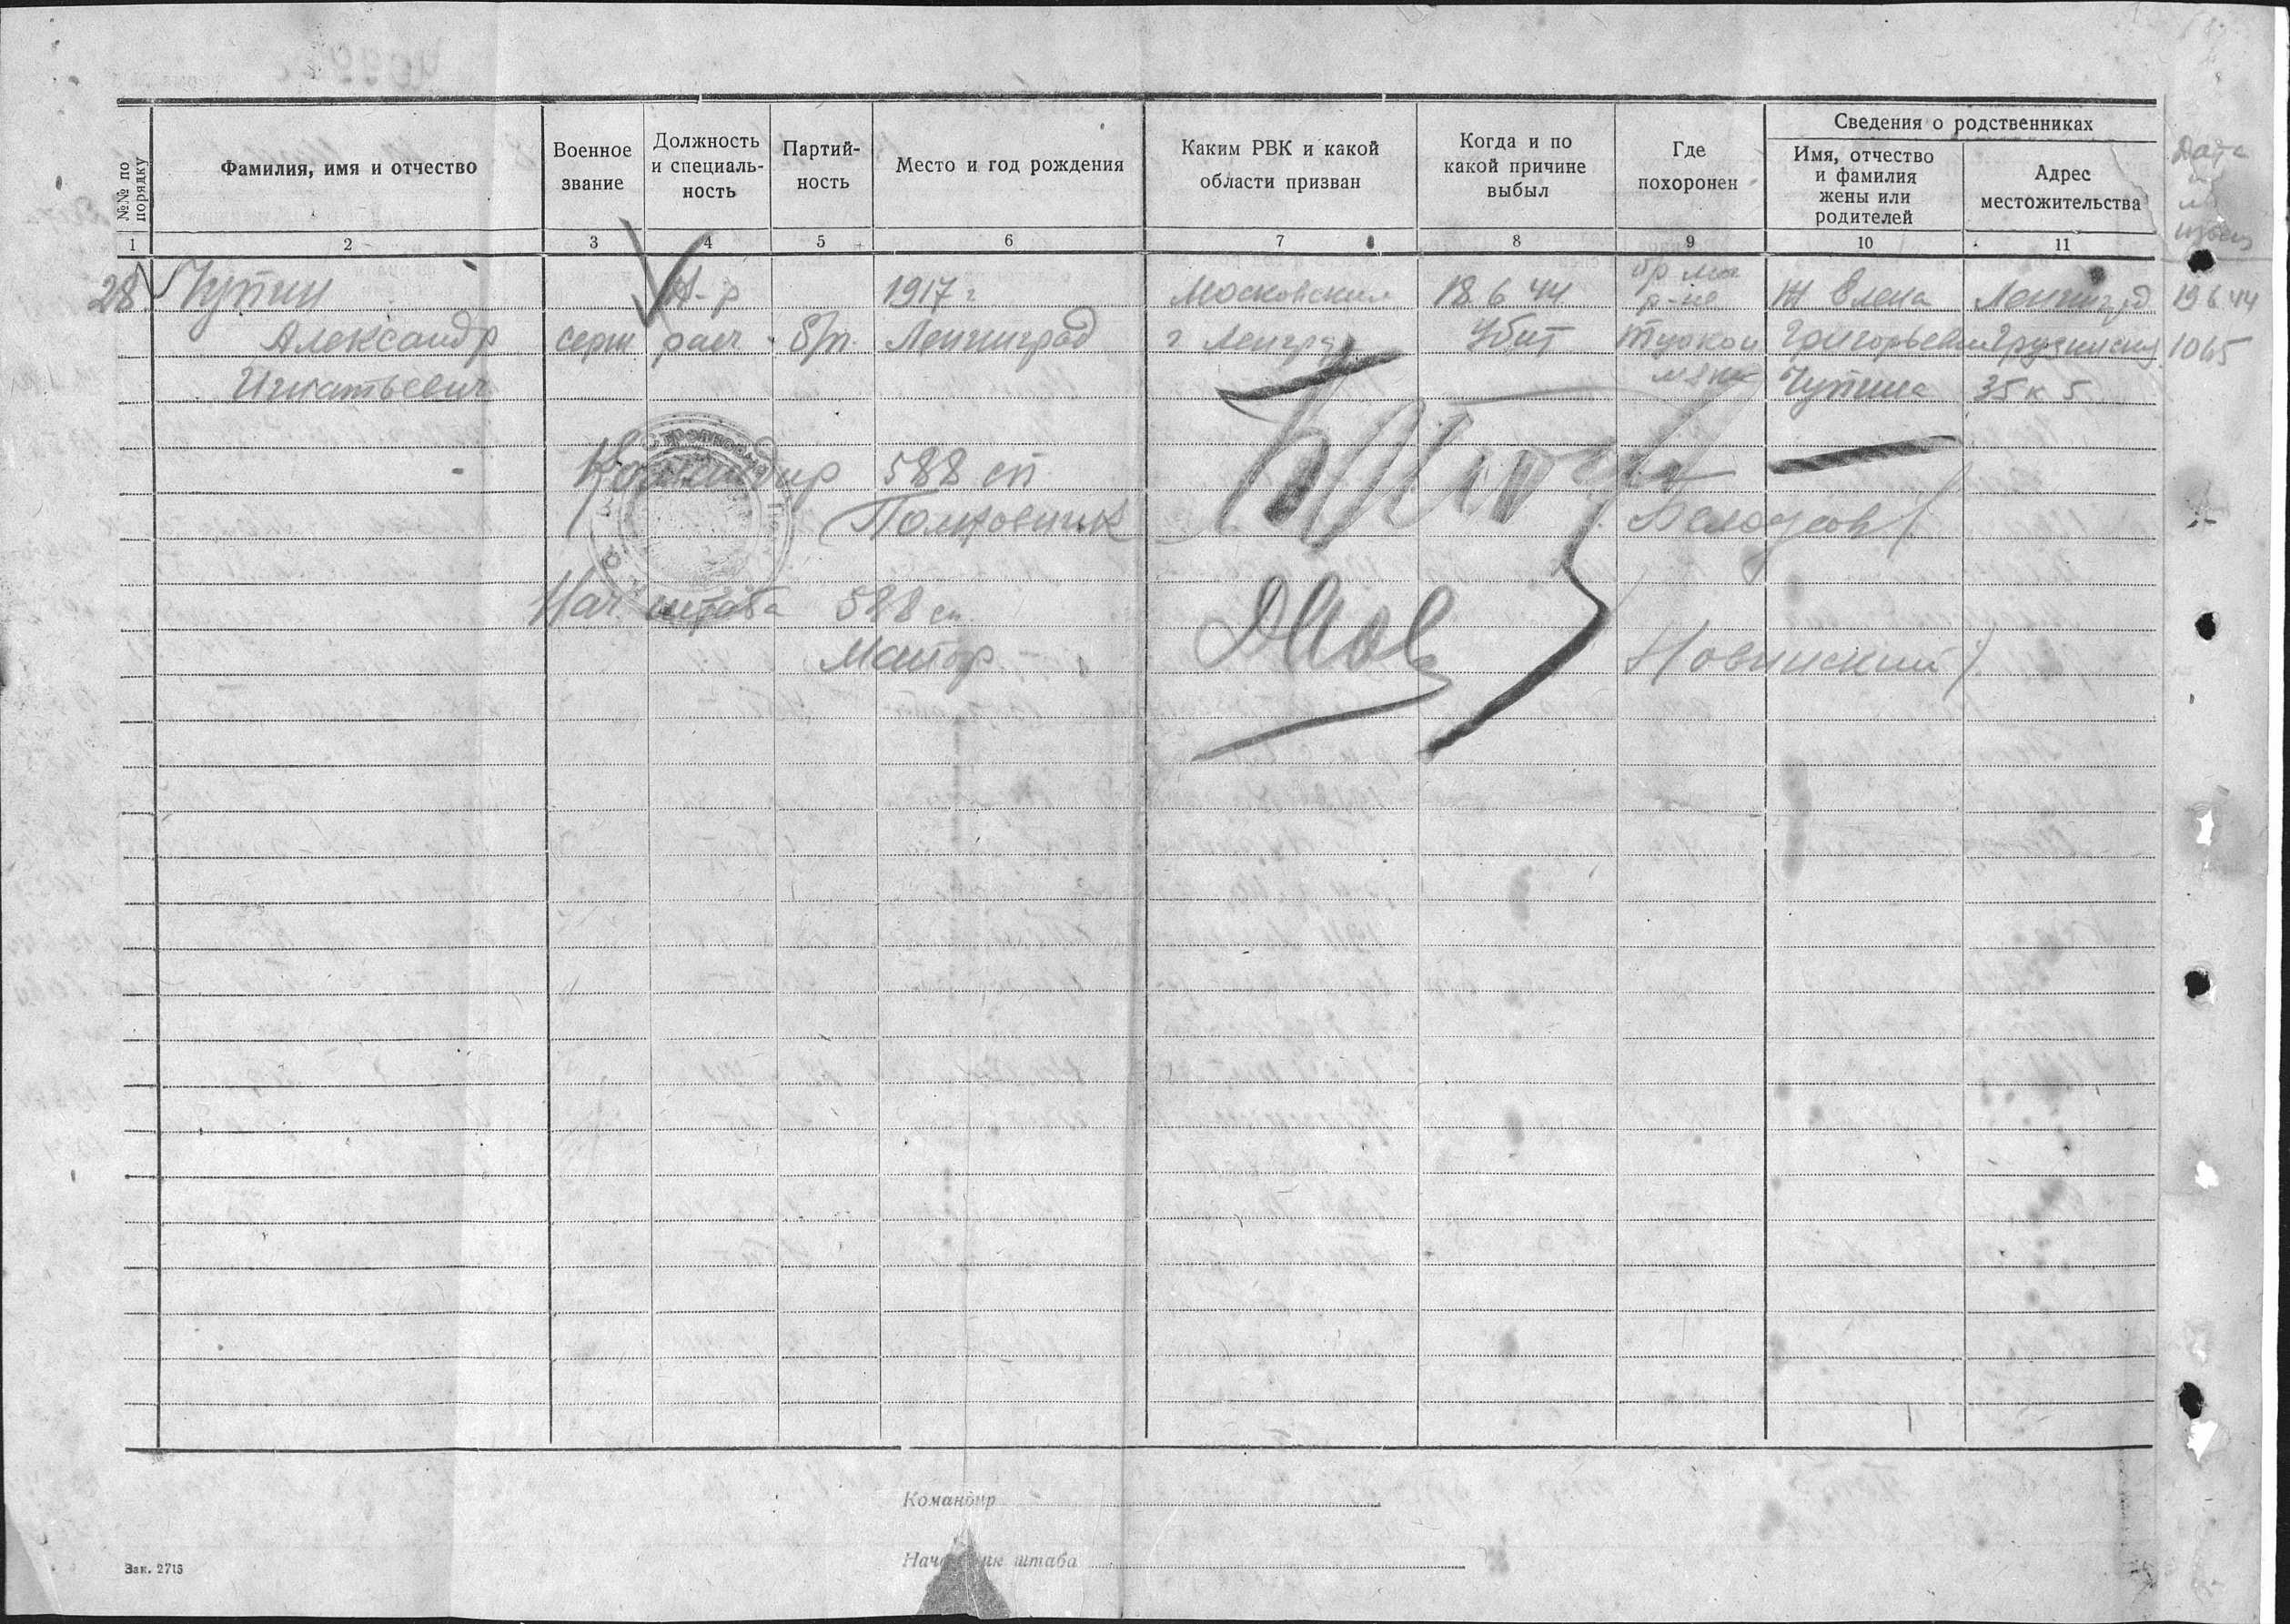 №№ по порядку
Фамилия, имя и отчество
Военное звание
Должность и специаль-ность
Партий-ность
Место и год рождения
Каким РВК и какой области призван
Когда и по какой причине выбыл
Где похоронен
Сведения о родственниках
Имя, отчество и фамилия жены или родителей
Адрес местожительства
Дата
1 2 3 4 5 6 7 8 9 10 11
28 Чупин 1917 г Московским 18 6 44 р-не Елена Ленинград 19 6 44
Александр серж расч. б/п. Ленинград г Ленгрд Убит Григорьевна 1065
Игнатьевич Чупина 35 к 5
Командир 588 сп
Полковник Белоусов)
Нач. штаба 588 сп.
Майор Новинский)
Командир
Начальник штаба
Зак. 2715